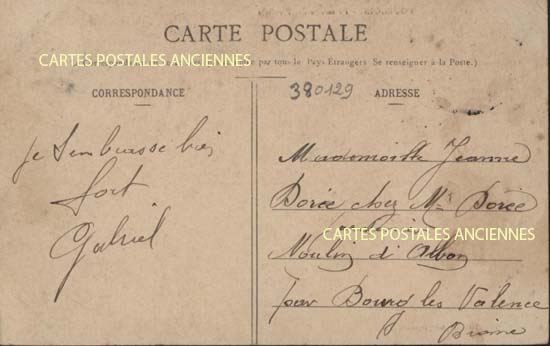 CARTE POSTALE
CARTES POSTALES ANCIENNES
par tous les Pays Etrangers Se renseigner à la Poste.)
CORRESPONDANCE
380129
ADRESSE
Je t'embrasse bien
fort
Gabriel
Mademoiselle Jeanne
Dorée chez Mr Dorée
CARTES POSTALES ANCIENNES
Moulin d'Albon
par Bourg les Valence
Drome